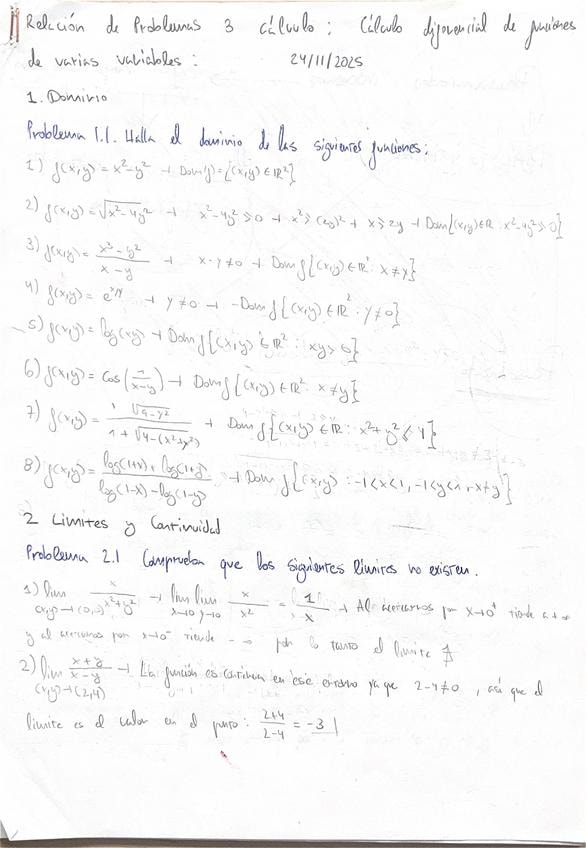 Relación de Problemas 3 cálculo: Cálculo diferencial de funciones
de varias variables: 24/11/2025
1. Dominio
Problema 1.1. Halla el dominio de las siguientes funciones:
1) f(x,y) = x²-y² → Dom f = {(x,y) ∈ ℝ²}
2) f(x,y) = √(x²-4y²) → x²-4y² ≥ 0 → x² ≥ (2y)² → x ≥ 2y → Dom f {(x,y) ∈ ℝ : x²-4y² ≥ 0}
3) f(x,y) = (x³-y²)/(x-y) → x-y ≠ 0 → Dom f {(x,y) ∈ ℝ² : x ≠ y}
4) f(x,y) = e^(x/y) → y ≠ 0 → Dom f {(x,y) ∈ ℝ² : y ≠ 0}
5) f(x,y) = log(xy) → Dom f {(x,y) ∈ ℝ² : xy > 0}
6) f(x,y) = cos(1/(x-y)) → Dom f {(x,y) ∈ ℝ² : x ≠ y}
7) f(x,y) = √(4-y²)/(1+√(4-(x²+y²))) → Dom f {(x,y) ∈ ℝ² : x²+y² ≤ 4}
8) f(x,y) = (log(1+x)+log(1+y))/(log(1-x)-log(1-y)) → Dom f {(x,y) : -1<x<1, -1<y<1, x≠y}
2 Limites y Continuidad
Problema 2.1 Comprueba que los siguientes limites no existen.
1) lim (x,y)→(0,0) x/(x²+y²) → lim x→0 lim y→0 x/x² = (1/x) → Al acercarnos por x→0⁺ tiende a +∞
y al acercarnos por x→0⁻ tiende -∞ por lo tanto el limite ∄
2) lim (x,y)→(2,4) (x+y)/(x-y) → La función es continua en ese entorno ya que 2-4≠0, así que el
limite es el valor en el punto: (2+4)/(2-4) = -3